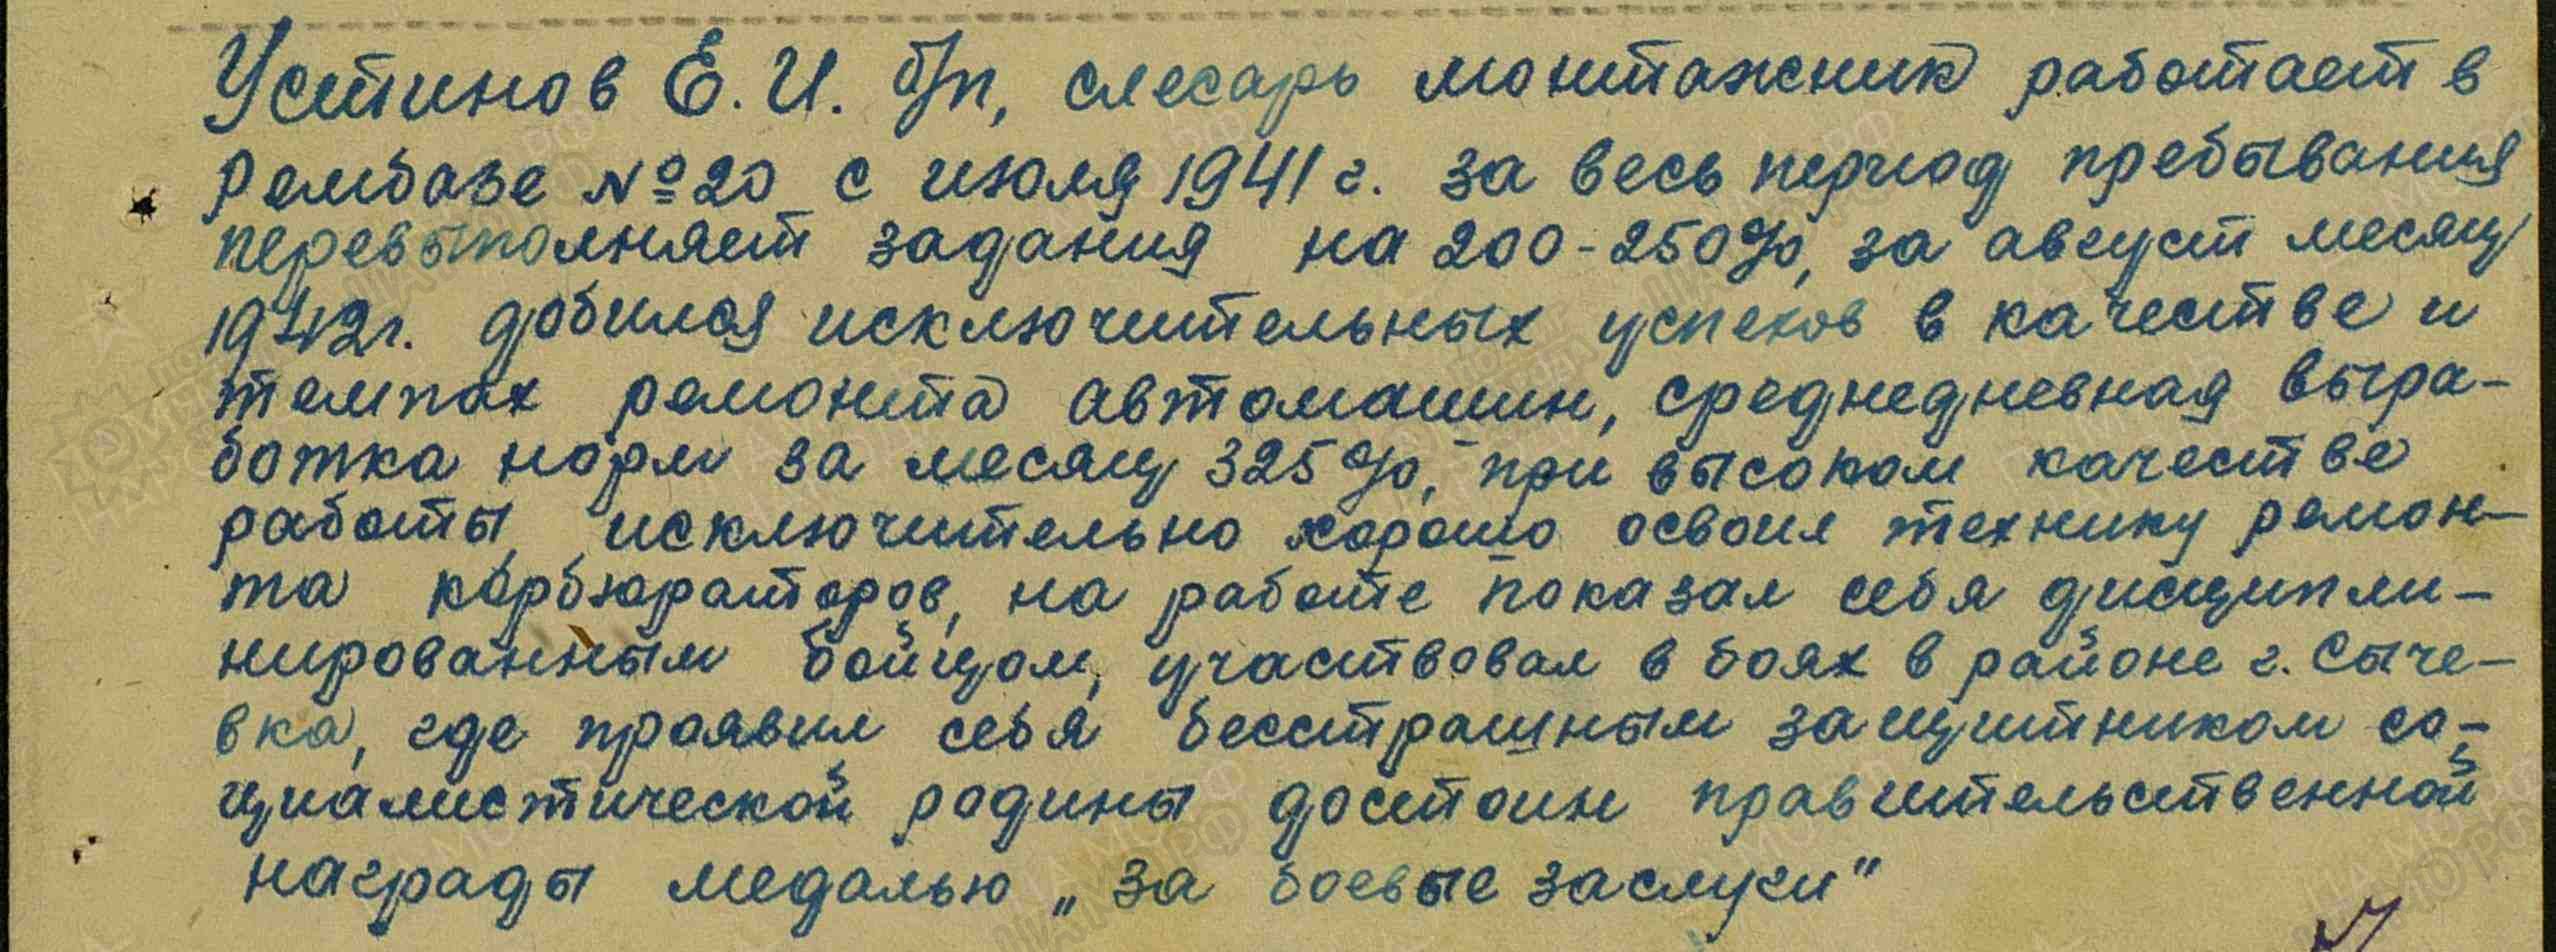 Устинов Е. И. б/п, слесарь монтажник работает в
Рембазе № 20 с июля 1941 г. за весь период пребывания
перевыполняет задания на 200-250%, за август месяц
1942г. добился исключительных успехов в качестве и
темпах ремонта автомашин, среднедневная выра-
ботка норм за месяц 325%, при высоком качестве
работы, исключительно хорошо освоил технику ремон-
та карбюраторов, на работе показал себя дисципли-
нированным бойцом, участвовал в боях в районе г. Сыче-
вка, где проявил себя бесстрашным защитником со-
циалистической родины достоин правительственной
награды медалью „за боевые заслуги"